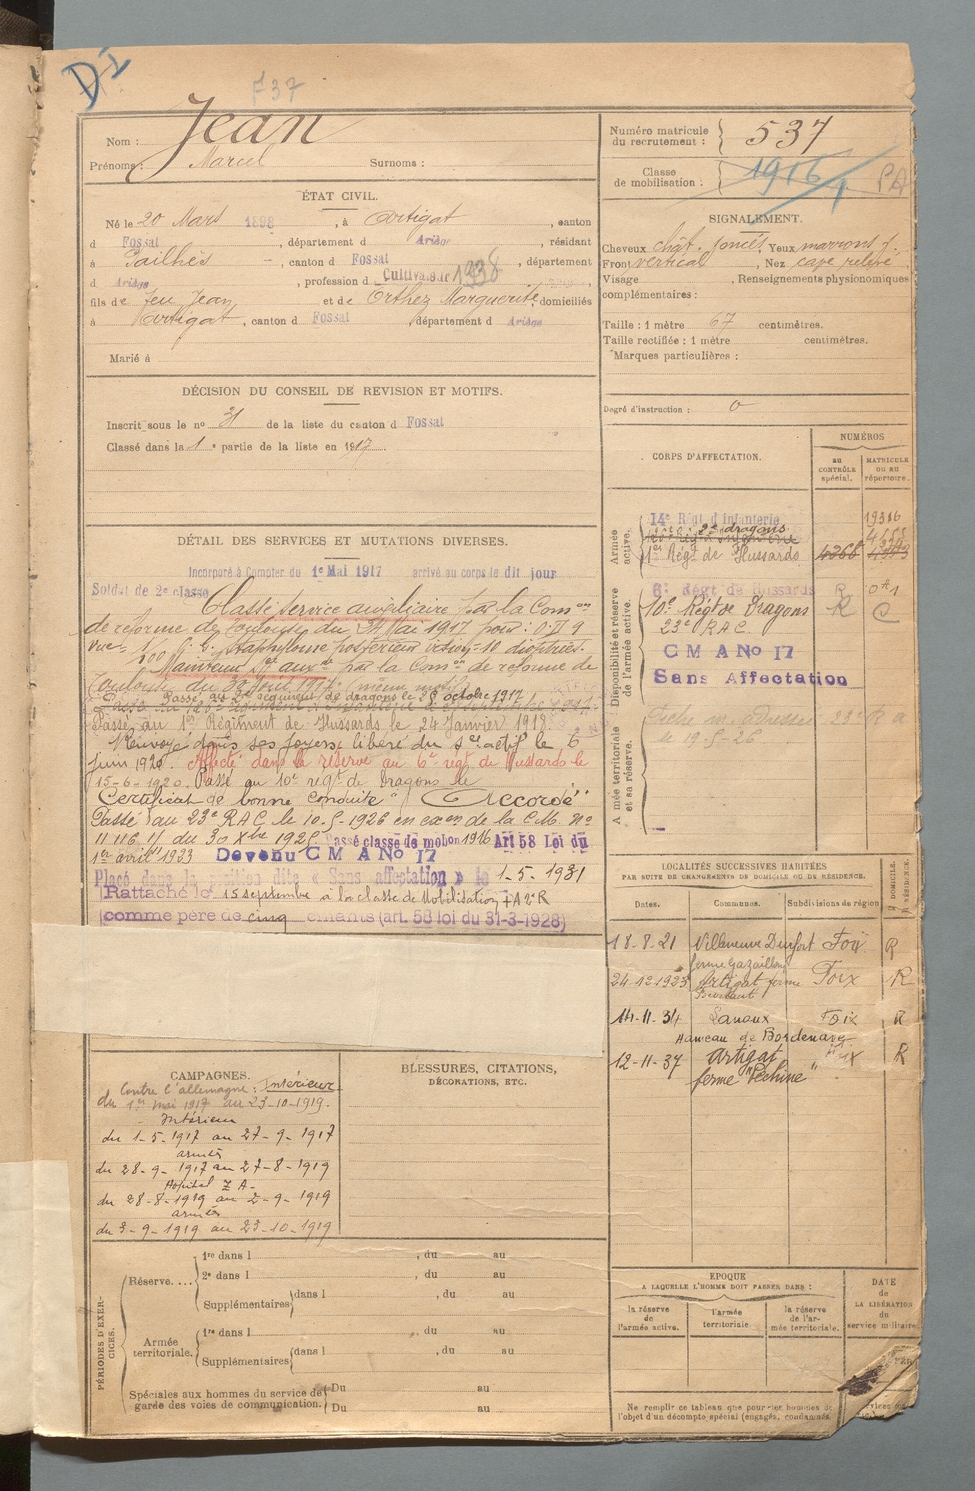 D1
F37
Nom : Jean
Prénoms : Marcel Surnoms :
Numéro matricule du recrutement : 537
Classe de mobilisation : 1916 PA
ÉTAT CIVIL.
Né le 20 Mars 1898, à Artigat, canton
d Fossat, département d Ariège, résidant
à Pailhès, canton d Fossat, département
d Ariège, profession d Cultivateur 1938
fils de feu Jean et de Orthez Marguerite, domiciliés
à Artigat, canton d Fossat, département d Ariège
Marié à
SIGNALEMENT.
Cheveux chât. foncés, Yeux marrons f.
Front vertical, Nez cave relevé
Visage , Renseignements physionomiques
complémentaires :
Taille : 1 mètre 67 centimètres.
Taille rectifiée : 1 mètre centimètres.
Marques particulières :
Degré d'instruction : 0
DÉCISION DU CONSEIL DE REVISION ET MOTIFS.
Inscrit sous le nº 31 de la liste du canton d Fossat
Classé dans la 1e partie de la liste en 1917
DÉTAIL DES SERVICES ET MUTATIONS DIVERSES.
Incorporé à Compter du 1e Mai 1917 arrivé au corps le dit jour
Soldat de 2e classe
Classé service auxiliaire par la Comon
de réforme de Toulouse du Mai 1917 pour :
vue = staphylome postérieur 10 dioptries.
Maintenu Sce auxre par la Comon de réforme de
Toulouse du même motif
Passé au 2e régiment de dragons le octobre 1917
Passé au 1er Régiment de Hussards le 24 Janvier 1919.
Renvoyé dans ses foyers libéré du sce actif le 6
juin 1920. Affecté dans la réserve au 6e régt de Hussards le
15-6-1920. Passé au 10e régt de Dragons le
Certificat de bonne conduite "Accordé"
Passé au 23e RAC le 10-5-1926 en exon de la C.M. No
11116 du 30 Xbre 1925. Passé classe de mobon 1916 Art 58 Loi du
1er avril 1923 Devenu C M A No 17
Placé dans la position dite « Sans affectation » le 1-5-1931
Rattaché le 15 septembre à la classe de Mobilisation
comme père de cinq enfants (art. 58 loi du 31-3-1928)
CORPS D'AFFECTATION.
NUMÉROS
AU CONTRÔLE spécial.
MATRICULE OU AU répertoire.
Armée active.
14e Régt d'infanterie 19316
2e dragons
1er Régt de Hussards 4366
Disponibilité et réserve de l'armée active.
6e Régt de Hussards R
10e Régt de Dragons R C
23e R.A.C.
C M A No 17
Sans Affectation
Armée territoriale et sa réserve.
Fiche m. adressée 23e R a
le 19-5-26
LOCALITÉS SUCCESSIVES HABITÉES
PAR SUITE DE CHANGEMENTS DE DOMICILE OU DE RÉSIDENCE.
Dates. Communes. Subdivisions de région D. DOMICILE. R. RÉSIDENCE.
18-8-21 Villeneuve Durfort Foix R
ferme Gazaillou
24-12-1923 Artigat ferme Foix R
14-11-34 Lanoux Foix R
Hameau de Bordenave
12-11-37 Artigat Foix R
ferme "Pechine"
CAMPAGNES.
Contre l'allemagne : Intérieur
du 1er mai 1917 au 23-10-1919.
Intérieur
du 1-5-1917 au 27-9-1917
armées
du 28-9-1917 au 27-8-1919
Hôpital Z A
du 28-8-1919 au 2-9-1919
armées
du 3-9-1919 au 23-10-1919
BLESSURES, CITATIONS,
DÉCORATIONS, ETC.
PÉRIODES D'EXERCICES.
Réserve.... 1re dans l , du au
2e dans l , du au
Supplémentaires dans l , du au
Armée territoriale. 1re dans l , du au
Supplémentaires dans l , du au
Spéciales aux hommes du service de garde des voies de communication. Du au
Du au
ÉPOQUE
A LAQUELLE L'HOMME DOIT PASSER DANS :
la réserve de l'armée active.
l'armée territoriale.
la réserve de l'armée territoriale.
DATE DE LA LIBÉRATION du service militaire
Ne remplir ce tableau que pour les hommes
l'objet d'un décompte spécial (engagés, condamnés